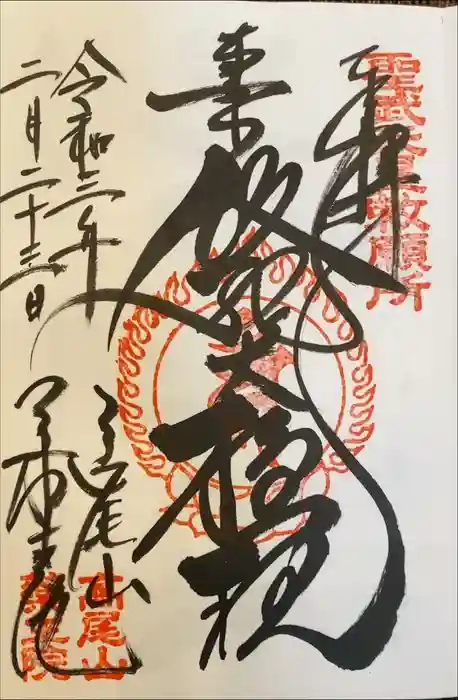 聖武天皇敕願所
奉拝
飯縄大権現
令和三年
二月二十三日
高尾山
薬王院
高尾山
薬王院